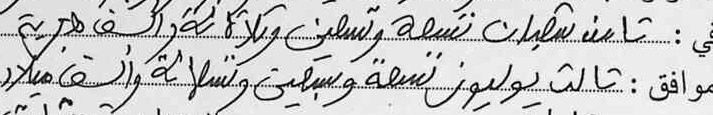 في : ثامن شعبان تسعة وتسعين وثلاثمائة وألف هجرية
موافق : ثالث يوليوز تسعة وسبعين وتسعمائة وألف ميلاد